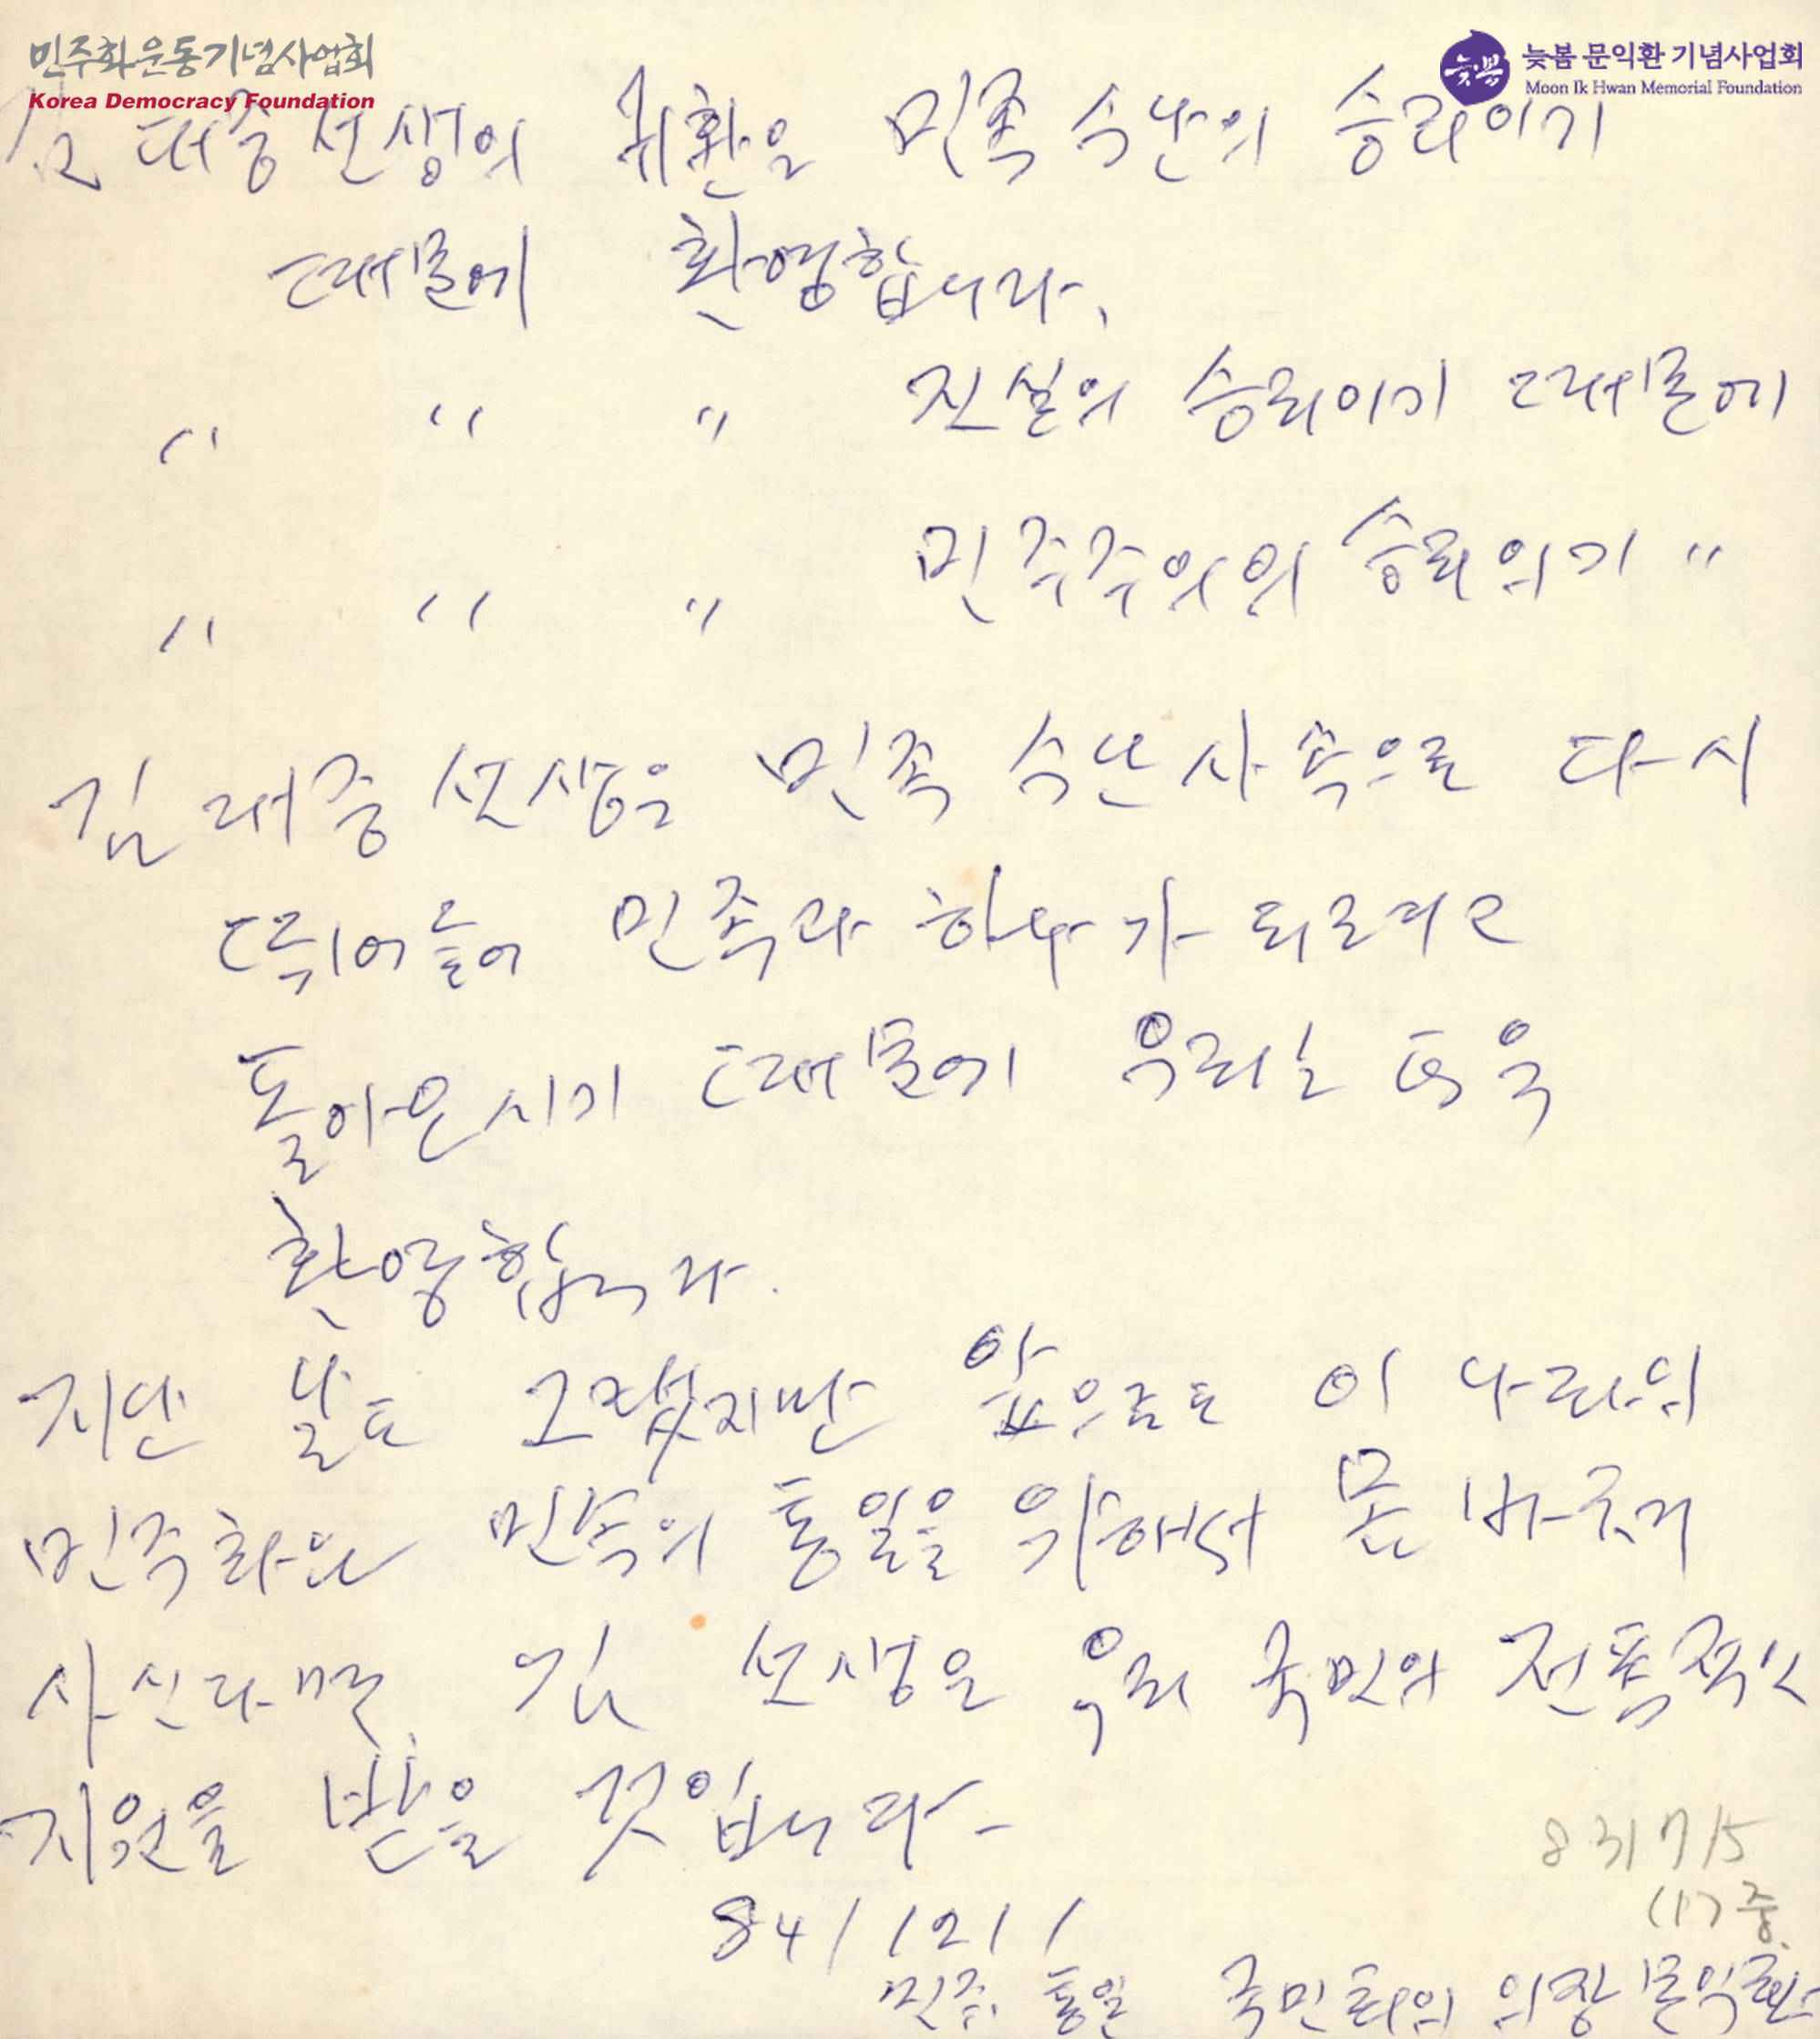 민주화운동기념사업회
Korea Democracy Foundation
늦봄
늦봄 문익환 기념사업회
Moon Ik Hwan Memorial Foundation
김대중선생의 귀환은 민족수난의 승리이기
때문에 환영합니다.
〃 〃 〃 진실의 승리이기 때문에
〃 〃 〃 민주주의의 승리이기 〃
김대중 선생은 민족 수난사 속으로 다시
뛰어들어 민족과 하나가 되려고
돌아오시기 때문에 우리는 더욱
환영합니다.
지난 날도 그랬지만 앞으로도 이 나라의
민주화와 민족의 통일을 위해서 몸 바쳐
사신다면, 김 선생은 우리 국민의 전폭적인
지원을 받을 것입니다.
83/7/5
(17중
84/12/1
민주. 통일 국민회의 의장 문익환